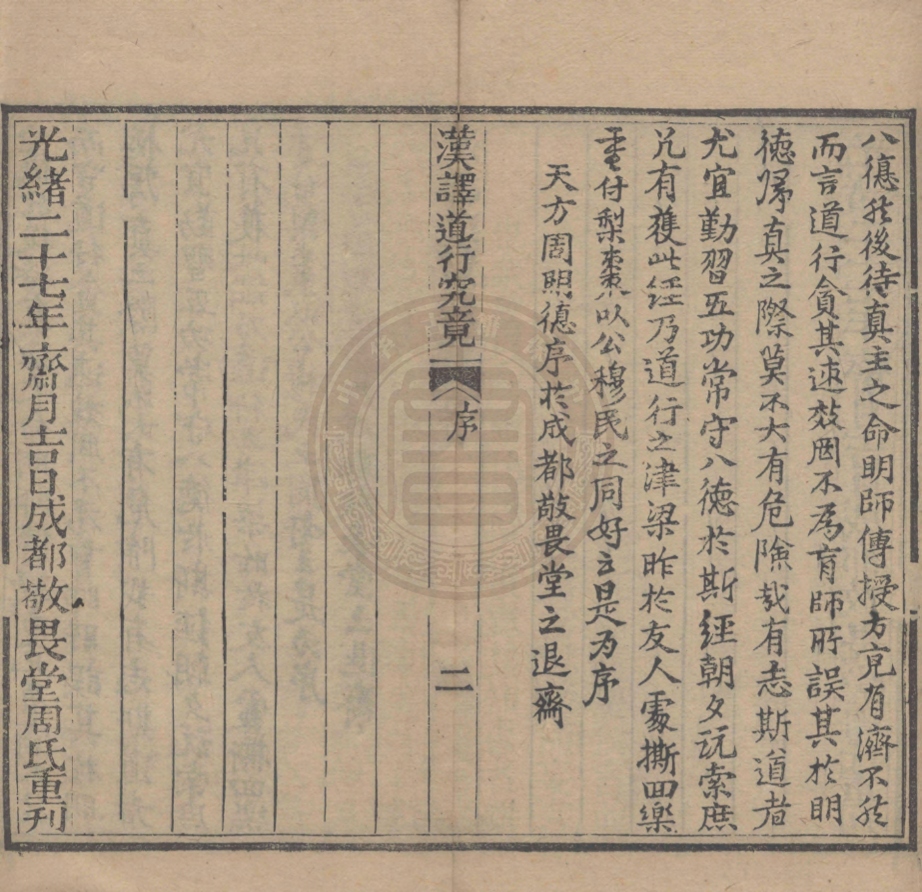 八德然後待真主之命明師傳授方克有濟不然
而言道行貪其速效罔不為盲師所誤其於明
德歸真之際莫不大有危險哉有志斯道者
尤宜勤習五功常守八德於斯經朝夕玩索庶
兄有獲此經乃道行之津梁昨於友人處撕回樂
重付梨棗以公穆民之同好云是為序
天方周明德序於成都敬畏堂之退齋
漢譯道行究竟 序 二
光緒二十七年齋月吉日成都敬畏堂周氏重刊